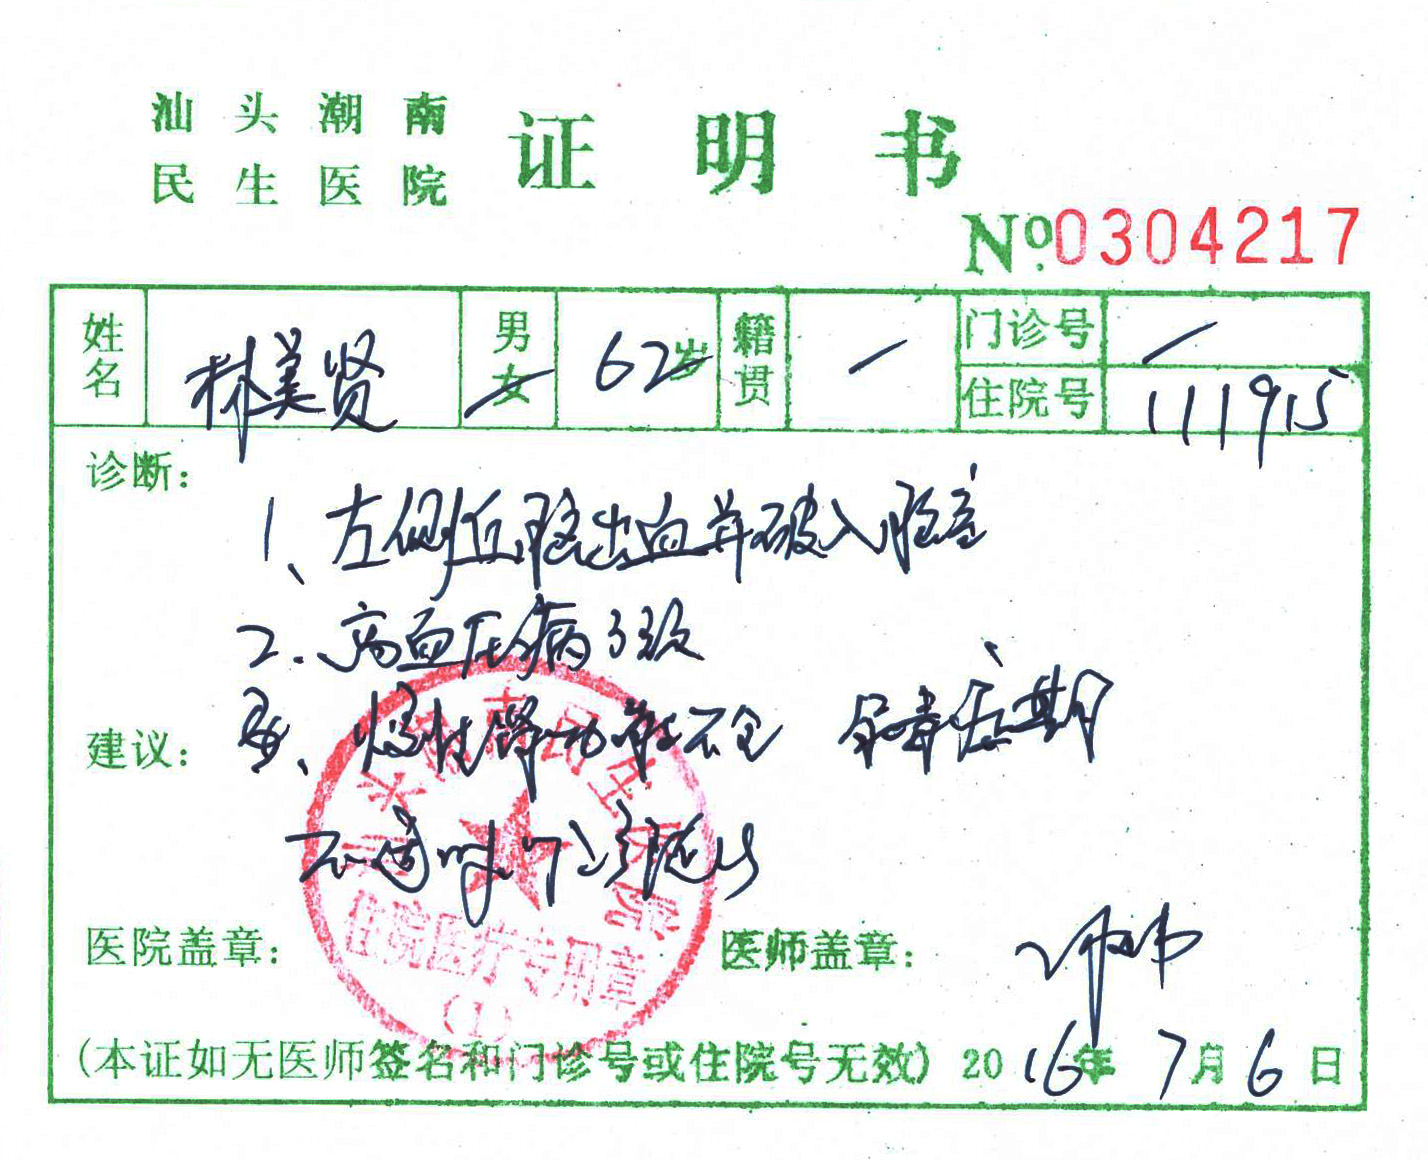 汕头潮南
民生医院
证明书
No.0304217
姓名 林美贤 男女 62岁 籍贯 / 门诊号 /
住院号 111915
诊断：
1、左侧丘脑出血并破入脑室
2、高血压病3级
3、慢性肾功能不全 尿毒症期
建议：
不适时门诊随诊
汕头潮南民生医院
住院医疗专用章
(1)
医院盖章： 医师盖章：
(本证如无医师签名和门诊号或住院号无效) 2016年7月6日